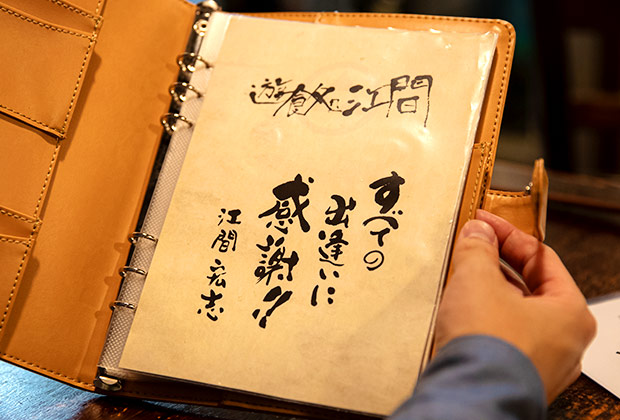 遊食飲に江間
すべての
出逢いに
感謝!!
江間宏志